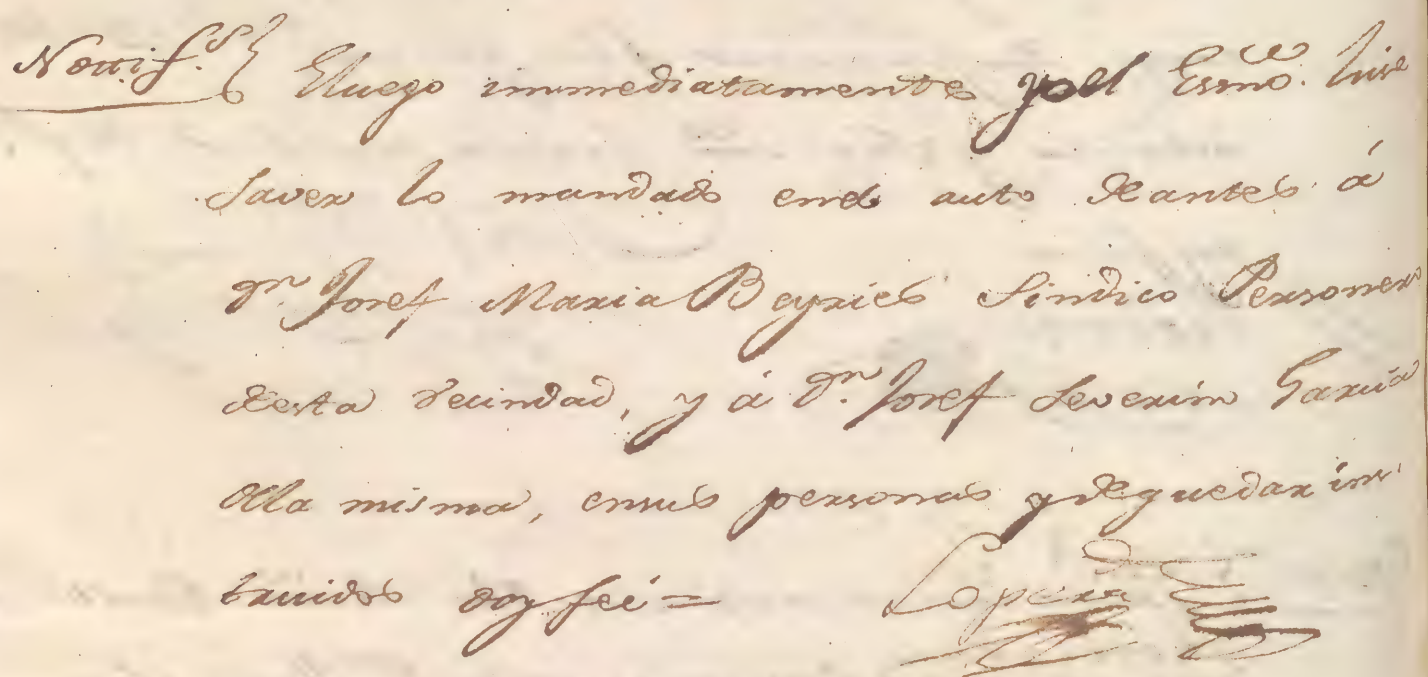 Nottif.s Eluego immediatamente yoel Essmô. hise
saver lo mandado enel auto deantes á
Dn. Josef Maria Beyries Sindico Personero
desta vecindad, y á Dn. Josef Severin Garcia
dla misma, ensus personas ydequedar ins
truidos doy feé=
Lopera